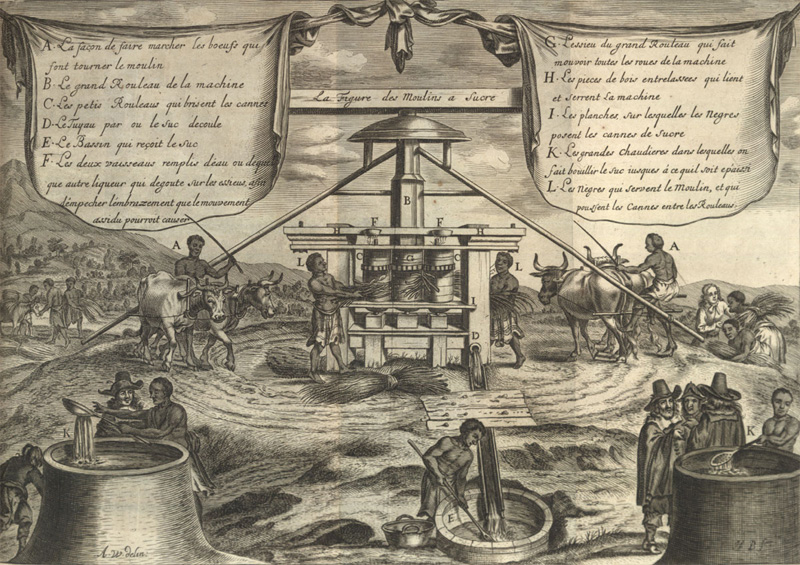 A. La façon de faire marcher les boeufs qui
font tourner le moulin
B. Le grand Rouleau de la machine
C. Les petis Rouleaus qui brisent les cannes
D. Le Tuyau par ou le suc decoule
E. Le Bassin qui reçoit le suc
F. Les deux vaisseaus remplis d'eau ou de que
que autre liqueur qui degoute sur les essieus, afin
d'empecher l'embrazement que le mouvement
assidu pourroit causer
La Figure des Moulins a Sucre
G. L'essieu du grand Rouleau qui fait
mouvoir toutes les roues de la machine
H. Les pieces de bois entrelassees qui lient
et serrent la machine
I. Les planches sur lesquelles les Negres
posent les cannes de sucre
K. Les grandes Chaudieres dans lesquelles on
fait bouillir le suc iusques à ce qu'il soit epaissi
L. Les Negres qui servent le Moulin, et qui
poussent les Cannes entre les Rouleaus.
A
B
F
F
H
H
L
C
G
C
L
A
I
D
K
E
K
A. W. delin.